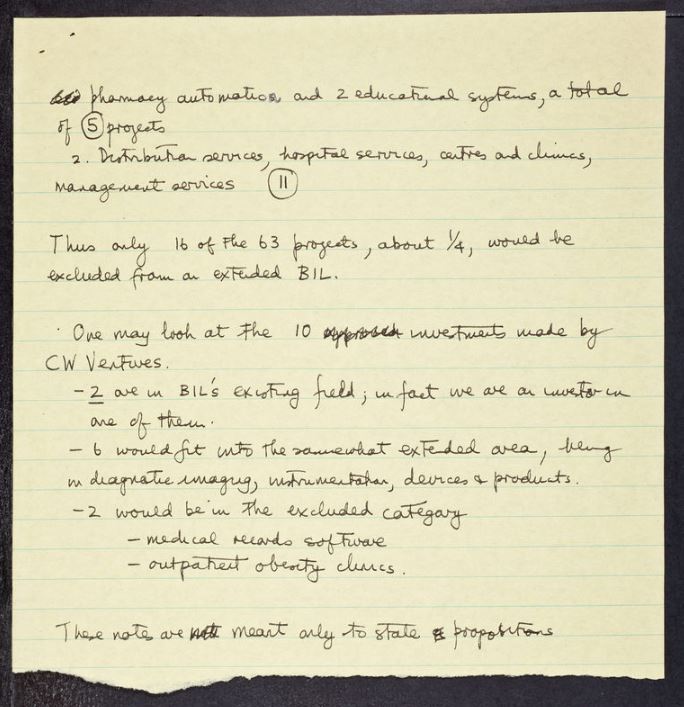 pharmacy automation and 2 educational systems, a total
of 5 projects
2. Distribution services, hospital services, centres and clinics,
management services 11
Thus only 16 of the 63 projects, about 1/4, would be
excluded from an extended BIL.
· One may look at the 10 approach investments made by
CW Ventures.
- 2 are in BIL's existing field; in fact we are an investor in
one of them.
- 6 would fit into the somewhat extended area, being
in diagnostic imaging, instrumentation, devices & products.
- 2 would be in the excluded category
- medical records software
- outpatient obesity clinics.
These notes are meant only to state propositions